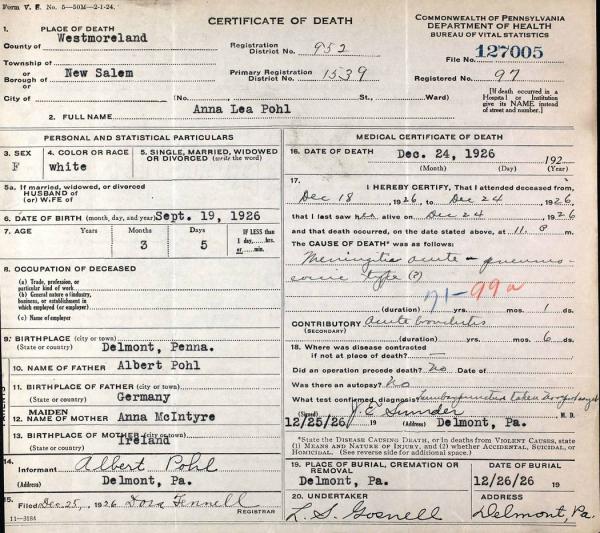 Form V. S. No. 5—50M—2-1-24.
CERTIFICATE OF DEATH
COMMONWEALTH OF PENNSYLVANIA
DEPARTMENT OF HEALTH
BUREAU OF VITAL STATISTICS
1. PLACE OF DEATH
County of Westmoreland
Registration District No. 952
File No. 127005
Township of
or
Borough of New Salem
Primary Registration District No. 1539
Registered No. 97
or
City of (No. St., Ward)
[If death occurred in a Hospital or Institution give its NAME instead of street and number.]
2. FULL NAME Anna Lea Pohl
PERSONAL AND STATISTICAL PARTICULARS
3. SEX F
4. COLOR OR RACE white
5. SINGLE, MARRIED, WIDOWED OR DIVORCED (write the word)
5a. If married, widowed, or divorced
HUSBAND of
(or) WIFE of
6. DATE OF BIRTH (month, day, and year) Sept. 19, 1926
7. AGE Years Months 3 Days 5 IF LESS than 1 day,....hrs. or....min.
8. OCCUPATION OF DECEASED
(a) Trade, profession, or particular kind of work
(b) General nature of industry, business, or establishment in which employed (or employer)
(c) Name of employer
9. BIRTHPLACE (city or town)
(State or country) Delmont, Penna.
PARENTS
10. NAME OF FATHER Albert Pohl
11. BIRTHPLACE OF FATHER (city or town)
(State or country) Germany
12. MAIDEN NAME OF MOTHER Anna McIntyre
13. BIRTHPLACE OF MOTHER (city or town)
(State or country) Ireland
14. Informant Albert Pohl
(Address) Delmont, Pa.
15. Filed Dec 25, 1926 Dora Fennell
REGISTRAR
11—3184
MEDICAL CERTIFICATE OF DEATH
16. DATE OF DEATH Dec. 24, 1926 192
(Month) (Day) (Year)
17. I HEREBY CERTIFY, That I attended deceased from
Dec 18 1926, to Dec 24 1926,
that I last saw her alive on Dec 24 1926
and that death occurred, on the date stated above, at 11. P m.
The CAUSE OF DEATH* was as follows:
Meningitis acute - pneumo-
coccic type (?)
71-99a
(duration) yrs. mos. 1 ds.
CONTRIBUTORY Acute bronchitis
(SECONDARY)
(duration) yrs. mos. 6 ds.
18. Where was disease contracted
if not at place of death? —
Did an operation precede death? No Date of
Was there an autopsy? No
What test confirmed diagnosis? Lumbar puncture taken
(Signed) M. D.
12/25/26 19 (Address) Delmont, Pa.
*State the DISEASE CAUSING DEATH, or in deaths from VIOLENT CAUSES, state (1) MEANS AND NATURE OF INJURY, and (2) whether ACCIDENTAL, SUICIDAL, or HOMICIDAL. (See reverse side for additional space.)
19. PLACE OF BURIAL, CREMATION OR REMOVAL
Delmont, Pa.
DATE OF BURIAL
12/26/26 19
20. UNDERTAKER
L. S. Gosnell
ADDRESS
Delmont, Pa.